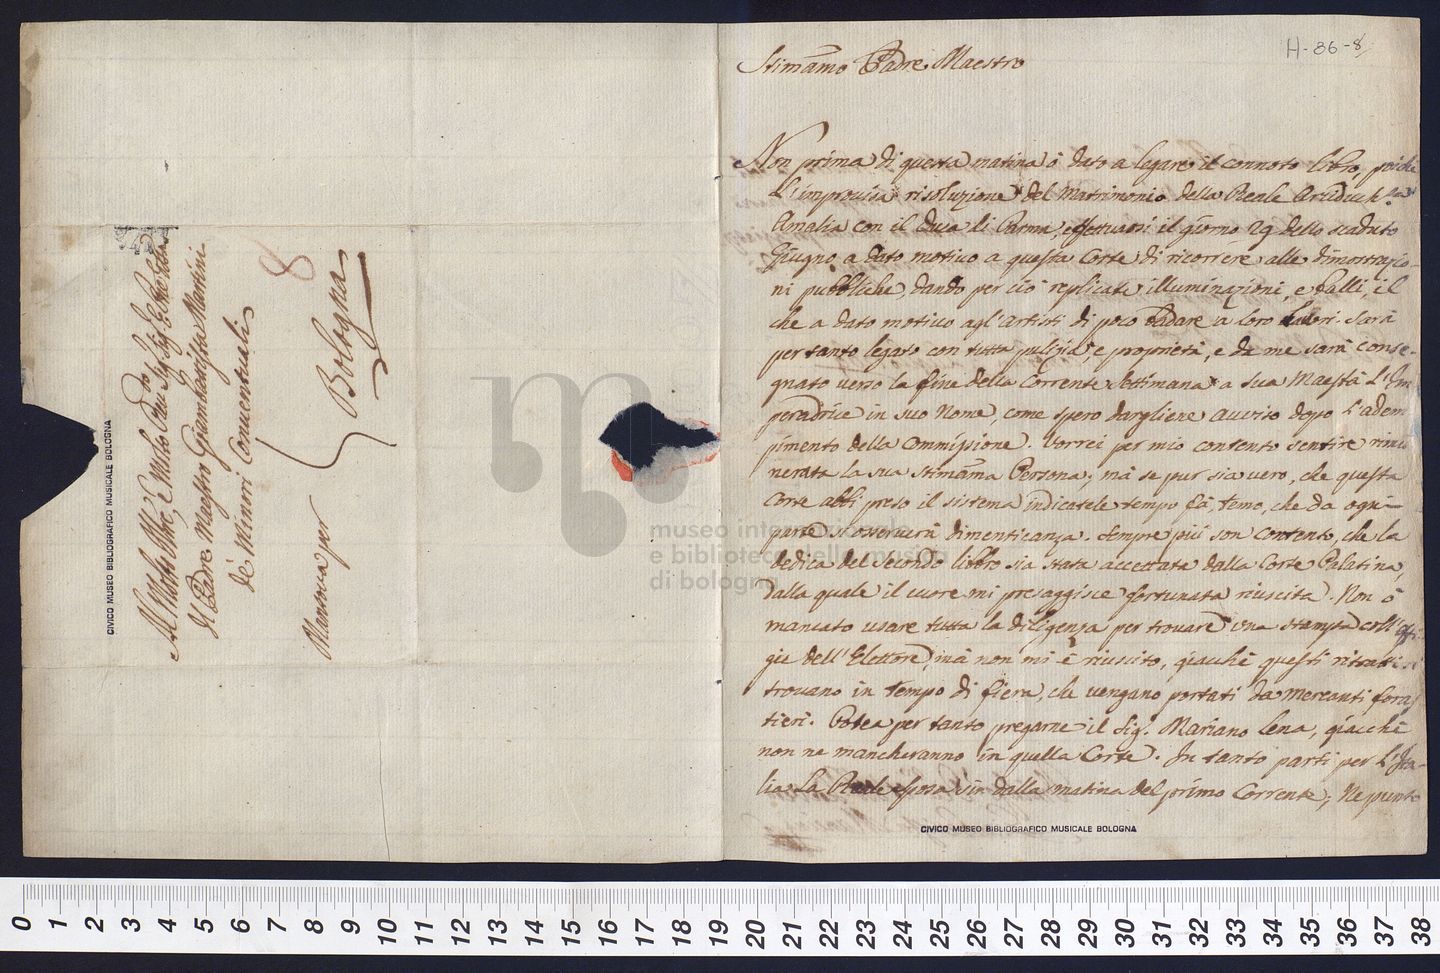 Al Molto Illre, e Molto Rndo
Il Padre Maestro Giambattista Martini
de' Minori Conventuali
Mantova per Bologna
8
CIVICO MUSEO BIBLIOGRAFICO MUSICALE BOLOGNA
H-86-8
Stimãmo Padre Maestro
Non prima di questa matina ò dato a legare il connoto libro, poiche
l'improvisa risoluzione del Matrimonio della Reale Arciduch.
Amalia con il Duca di Parma, effettuatosi il giorno 29 dello scaduto
Giugno, a dato motivo a questa Corte di ricorrere alle dimostrazio-
ni pubbliche, dando per ciò replicate illuminazioni, e balli, il
che a dato motivo agl'Artisti di poco badare a loro lavori. Sarà
per tanto legato con tutta pulizia, e proprietà, e da me sarà conse-
gnato verso la fine della corrente settimana a sua Maestà l'Im
peradrice in suo Nome, come spero dargliene avviso dopo l'adem
pimento della Commissione. Vorrei per mio contento sentire rimu
nerata la sua stimãma Persona; mà se pur sia vero, che questa
Corte abbi preso il sistema indicatole tempo fà, temo, che da ogni
parte s'osserverà dimenticanza. Sempre più son contento, che la
dedica del secondo libro sia stata accettata dalla Corte Palatina,
dalla quale il cuore mi presaggisce fortunata riuscita. Non ò
mancato usare tutta la diligenza per trovare una stampa coll'effi
gie dell'Elettore, mà non mi è riuscito, giacchè questi ritratti si
trovano in tempo di fiera, che vengano portati da Mercanti foras
tieri. Potea per tanto pregarne il Sig.r Mariano Lena, giacchè
non ne mancheranno in quella Corte. In tanto partì per l'Ita-
lia la Reale sposa sin dalla matina del primo Corrente; Ne punto
CIVICO MUSEO BIBLIOGRAFICO MUSICALE BOLOGNA
museo internazionale
e biblioteca della musica
di bologna
0 1 2 3 4 5 6 7 8 9 10 11 12 13 14 15 16 17 18 19 20 21 22 23 24 25 26 27 28 29 30 31 32 33 34 35 36 37 38